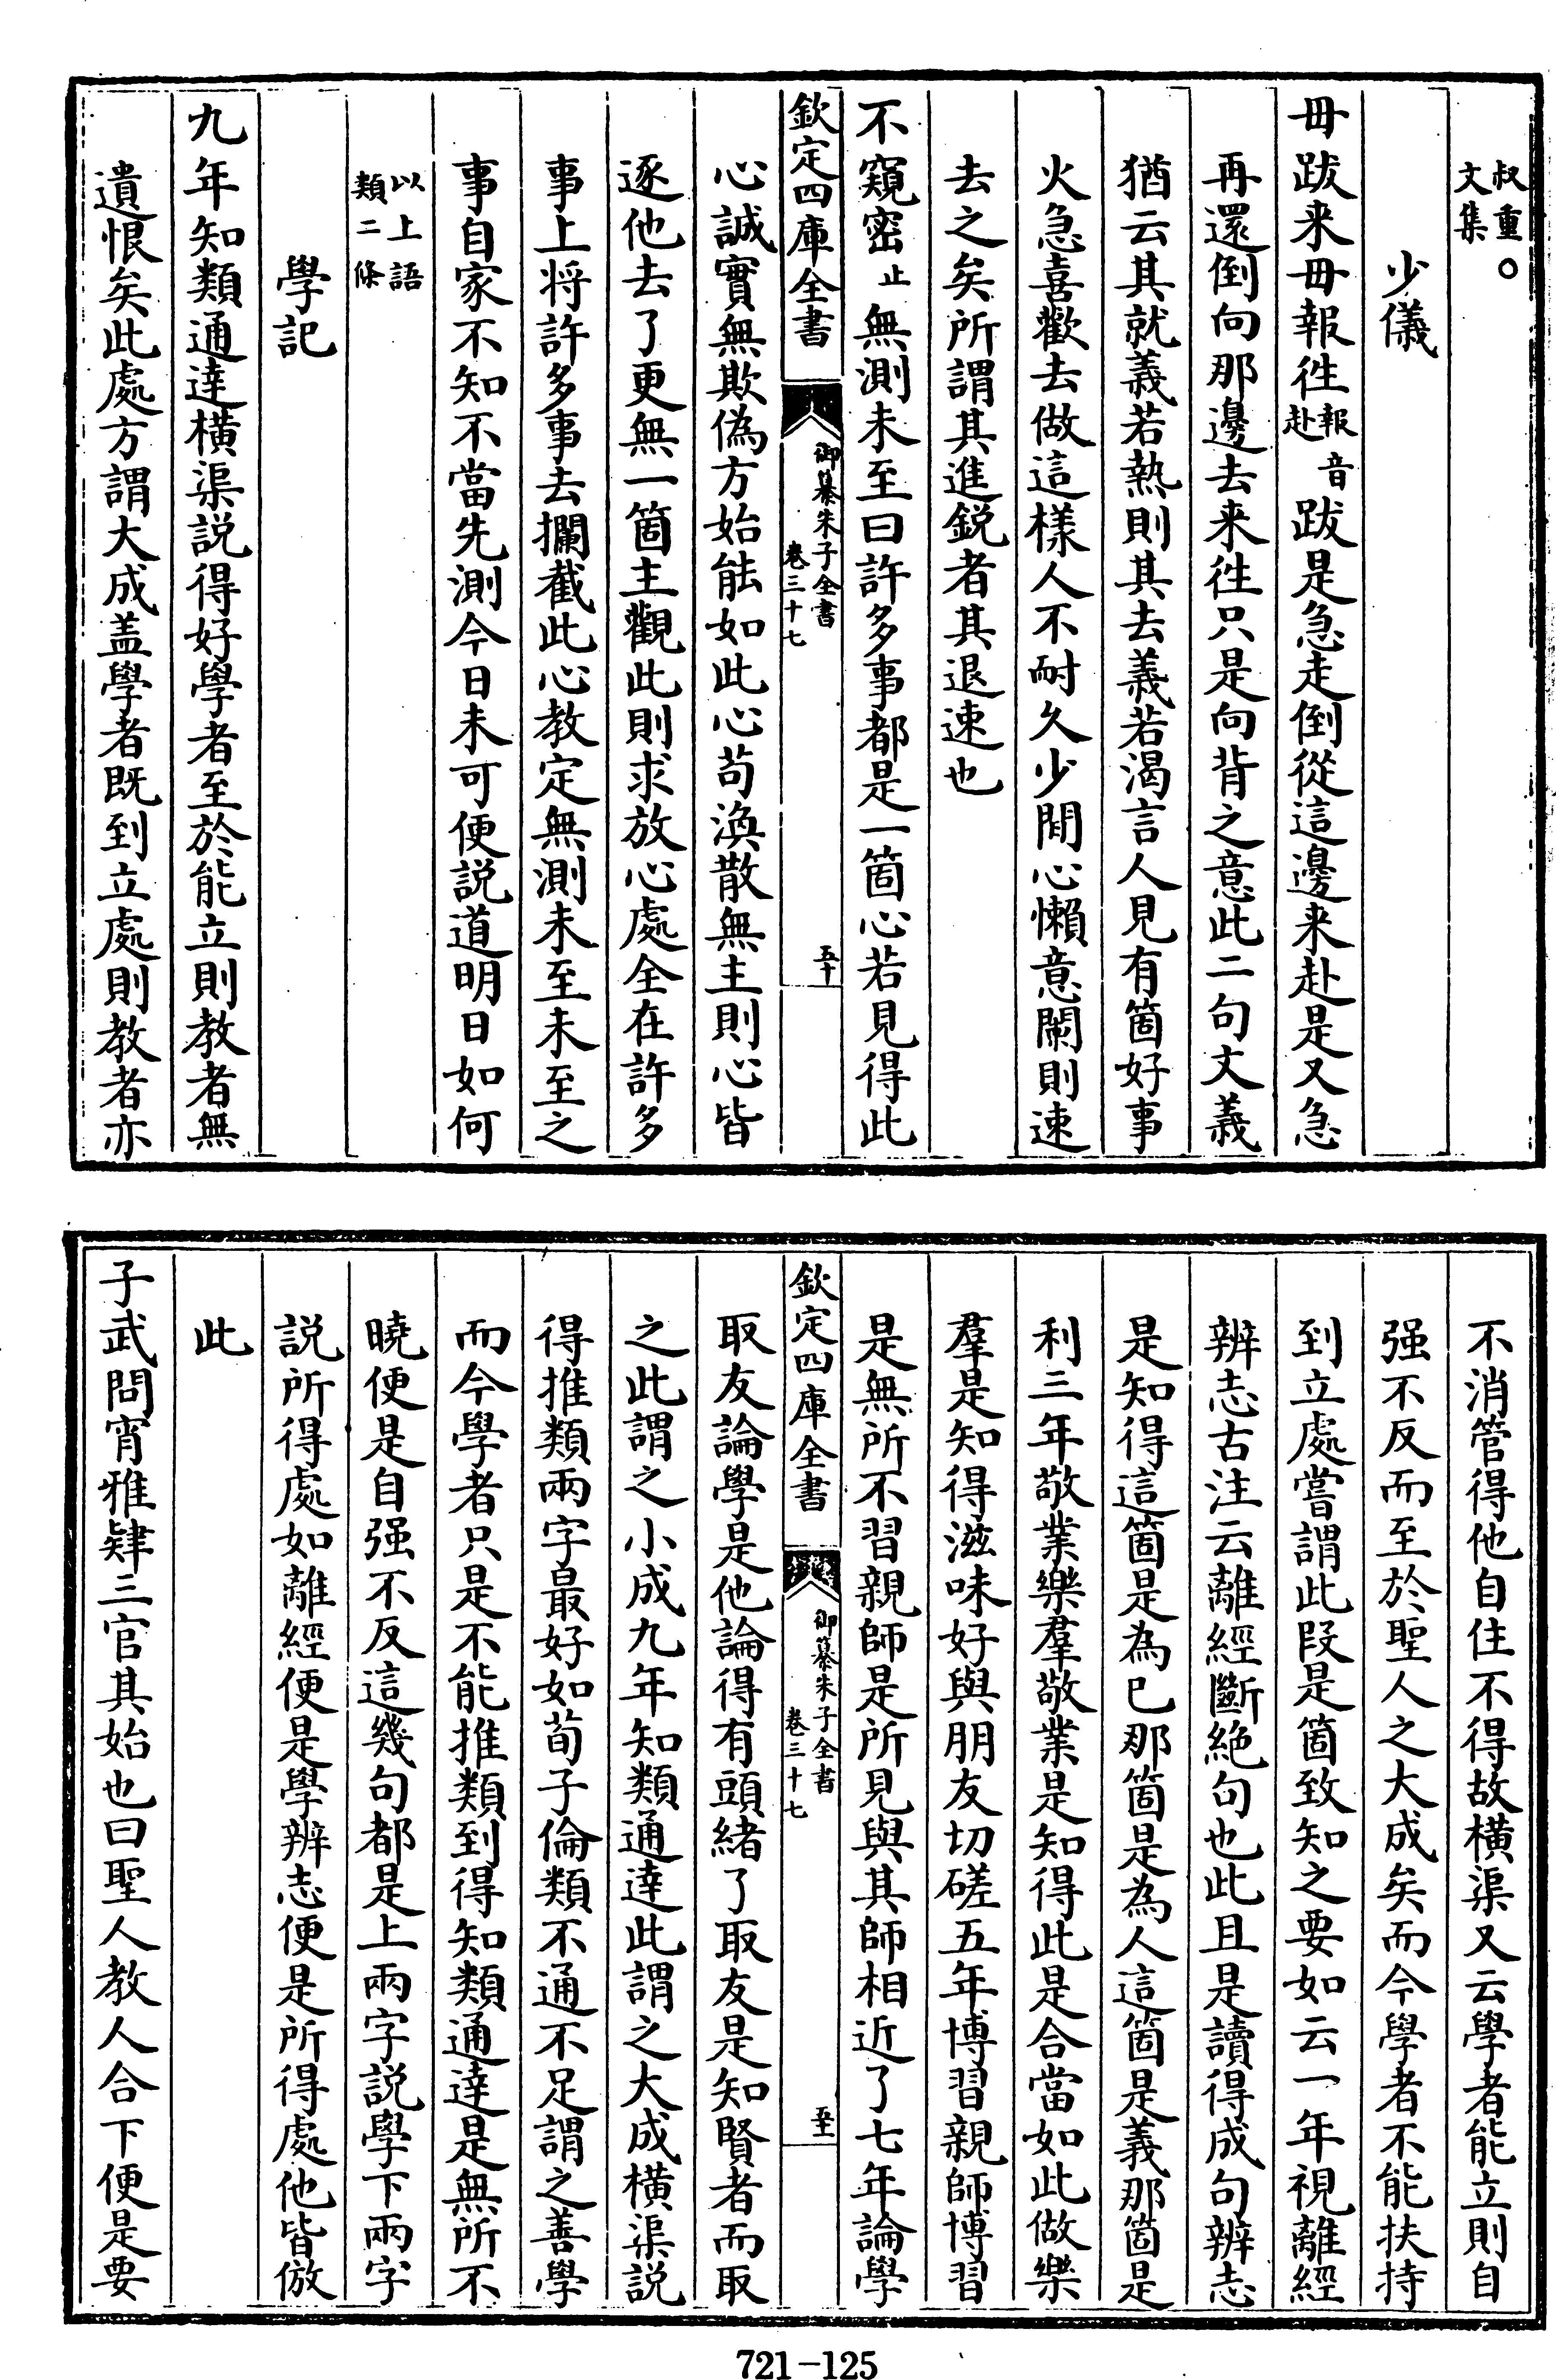 叔重○
文集
少儀
毋跋来毋報徃報音赴跋是急走倒從這邊来赴是又急
再還倒向那邊去来徃只是向背之意此二句文義
猶云其就義若熱則其去義若渴言人見有箇好事
火急喜歡去做這樣人不耐久少閒心懶意闌則速
去之矣所謂其進銳者其退速也
不窺密止無測未至曰許多事都是一箇心若見得此
欽定四庫全書
御纂朱子全書
卷三十七
五十
心誠實無欺偽方始能如此心苟渙散無主則心皆
逐他去了更無一箇主觀此則求放心處全在許多
事上将許多事去攔截此心教定無測未至未至之
事自家不知不當先測今日未可便説道明日如何
以上語
類二條
學記
九年知類通達橫渠説得好學者至於能立則教者無
遺恨矣此處方謂大成盖學者既到立處則教者亦
不消管得他自住不得故橫渠又云學者能立則自
强不反而至於聖人之大成矣而今學者不能扶持
到立處嘗謂此段是箇致知之要如云一年視離經
辨志古注云離經斷絶句也此且是讀得成句辨志
是知得這箇是為己那箇是為人這箇是義那箇是
利三年敬業樂羣敬業是知得此是合當如此做樂
羣是知得滋味好與朋友切磋五年博習親師博習
是無所不習親師是所見與其師相近了七年論學
欽定四庫全書
御纂朱子全書
卷三十七
五十一
取友論學是他論得有頭緒了取友是知賢者而取
之此謂之小成九年知類通達此謂之大成橫渠説
得推類兩字最好如荀子倫類不通不足謂之善學
而今學者只是不能推類到得知類通達是無所不
曉便是自强不反這幾句都是上兩字説學下兩字
説所得處如離經便是學辨志便是所得處他皆倣
此
子武問宵雅肄三官其始也曰聖人教人合下便是要
721-125